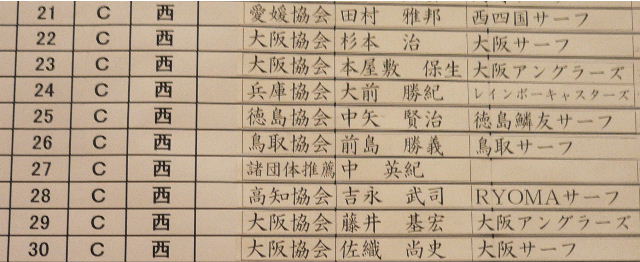 21 C 西 愛媛協会 田村 雅邦 西四国サーフ
22 C 西 大阪協会 杉本 治 大阪サーフ
23 C 西 大阪協会 本屋敷 保生 大阪アングラーズ
24 C 西 兵庫協会 大前 勝紀 レインボーキャスターズ
25 C 西 徳島協会 中矢 賢治 徳島鱗友サーフ
26 C 西 鳥取協会 前島 勝義 鳥取サーフ
27 C 西 諸団体推薦 中 英紀
28 C 西 高知協会 吉永 武司 RYOMAサーフ
29 C 西 大阪協会 藤井 基宏 大阪アングラーズ
30 C 西 大阪協会 佐織 尚史 大阪サーフ